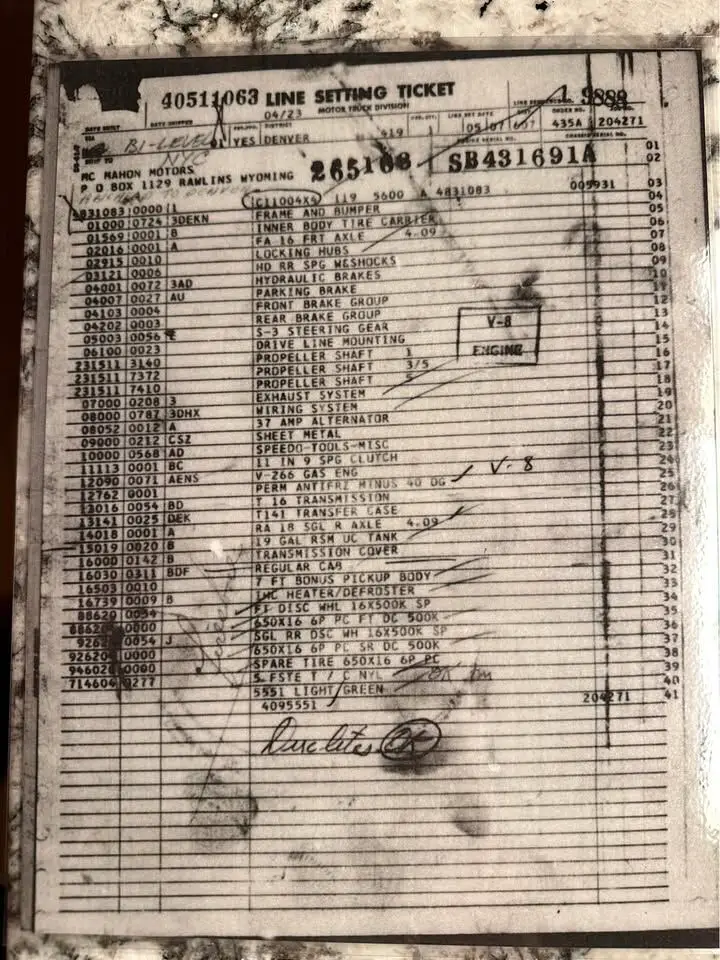 40511063 LINE SETTING TICKET
04/23 MOTOR TRUCK DIVISION
DATE BUILT DATE SHIPPED DISTRICT LINE SET DATE ORDER NO.
BI-LEVEL 01 YES DENVER 419 1 05/07 607 435A 204271
NYC
MC MAHON MOTORS 265168 SB431691A 01
P O BOX 1129 RAWLINS WYOMING 02
C11004X4 119 5600 A 4831083 005931 03
4831083 0000 1 FRAME AND BUMPER 04
01000 0724 3DEKN INNER BODY TIRE CARRIER 05
01569 0001 B FA 16 FRT AXLE 4.09 06
02016 0001 A LOCKING HUBS 07
02915 0010 HD RR SPG W&SHOCKS 08
03121 0006 HYDRAULIC BRAKES 09
04001 0072 3AD PARKING BRAKE 10
04007 0027 AU FRONT BRAKE GROUP 11
04103 0004 REAR BRAKE GROUP 12
04202 0003 S-3 STEERING GEAR 13
05003 0056 E DRIVE LINE MOUNTING 14
06100 0023 PROPELLER SHAFT 1 15
231511 3140 PROPELLER SHAFT 3/5 16
231511 7372 PROPELLER SHAFT 5 17
231511 7410 EXHAUST SYSTEM 18
07000 0208 3 WIRING SYSTEM 19
08000 0787 3DHX 37 AMP ALTERNATOR 20
08052 0012 A SHEET METAL 21
09000 0212 CSZ SPEEDO-TOOLS-MISC 22
10000 0568 AD 11 IN 9 SPG CLUTCH 23
11113 0001 BC V-266 GAS ENG V-8 24
12090 0071 AENS PERM ANTIFRZ MINUS 40 DG 25
12762 0001 T 16 TRANSMISSION 26
13016 0054 BD T141 TRANSFER CASE 27
13141 0025 DEK RA 18 SGL R AXLE 4.09 28
14018 0001 A 19 GAL RSM UC TANK 29
15019 0020 B TRANSMISSION COVER 30
16000 0142 B REGULAR CAB 31
16030 0311 BDF 7 FT BONUS PICKUP BODY 32
16503 0010 IHC HEATER/DEFROSTER 33
16739 0009 B FT DISC WHL 16X500K SP 34
88620 0054 650X16 6P PC FT DC 500K 35
0000 SGL RR DSC WH 16X500K SP 36
0054 J 650X16 6P PC SR DC 500K 37
926204 0000 SPARE TIRE 650X16 6P PC 38
0000 S FSTE T / C NYL OK 39
714604 0277 5551 LIGHT GREEN 40
4095551 204271 41
V-8
ENGINE
OK